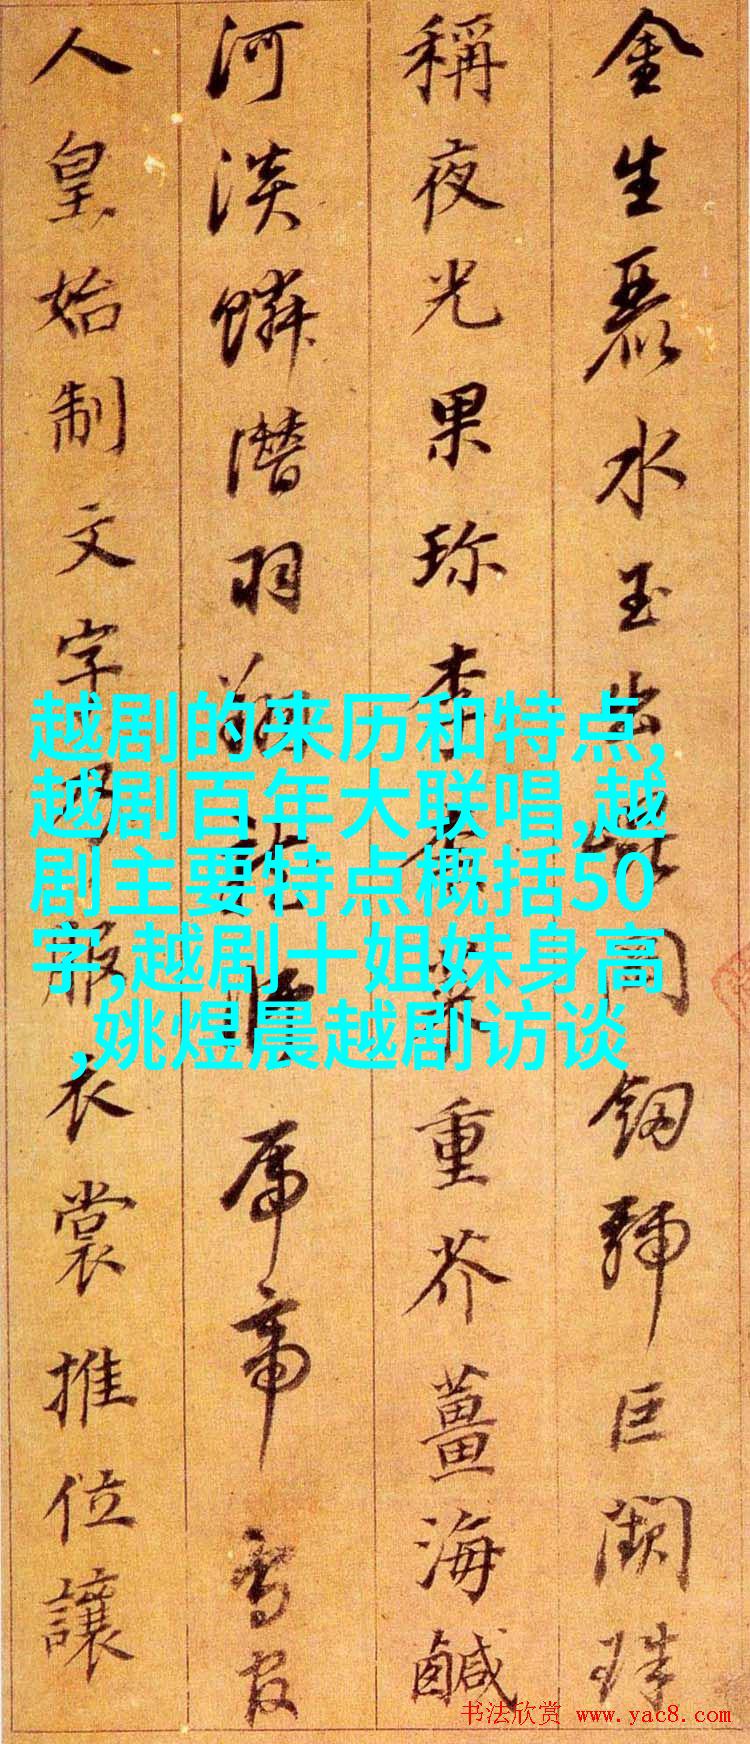 金生麗水玉出崑岡劒號巨闕珠
稱夜光果珍李柰菜重芥薑海鹹
河淡鱗潛羽翔帝鳥官
人皇始制文字乃服衣裳推位讓
越剧的来历和特点,
越剧百年大联唱,越
剧主要特点概括50
字,越剧十姐妹身高
,姚煜晨越剧访谈
书法欣赏 www.yac8.com